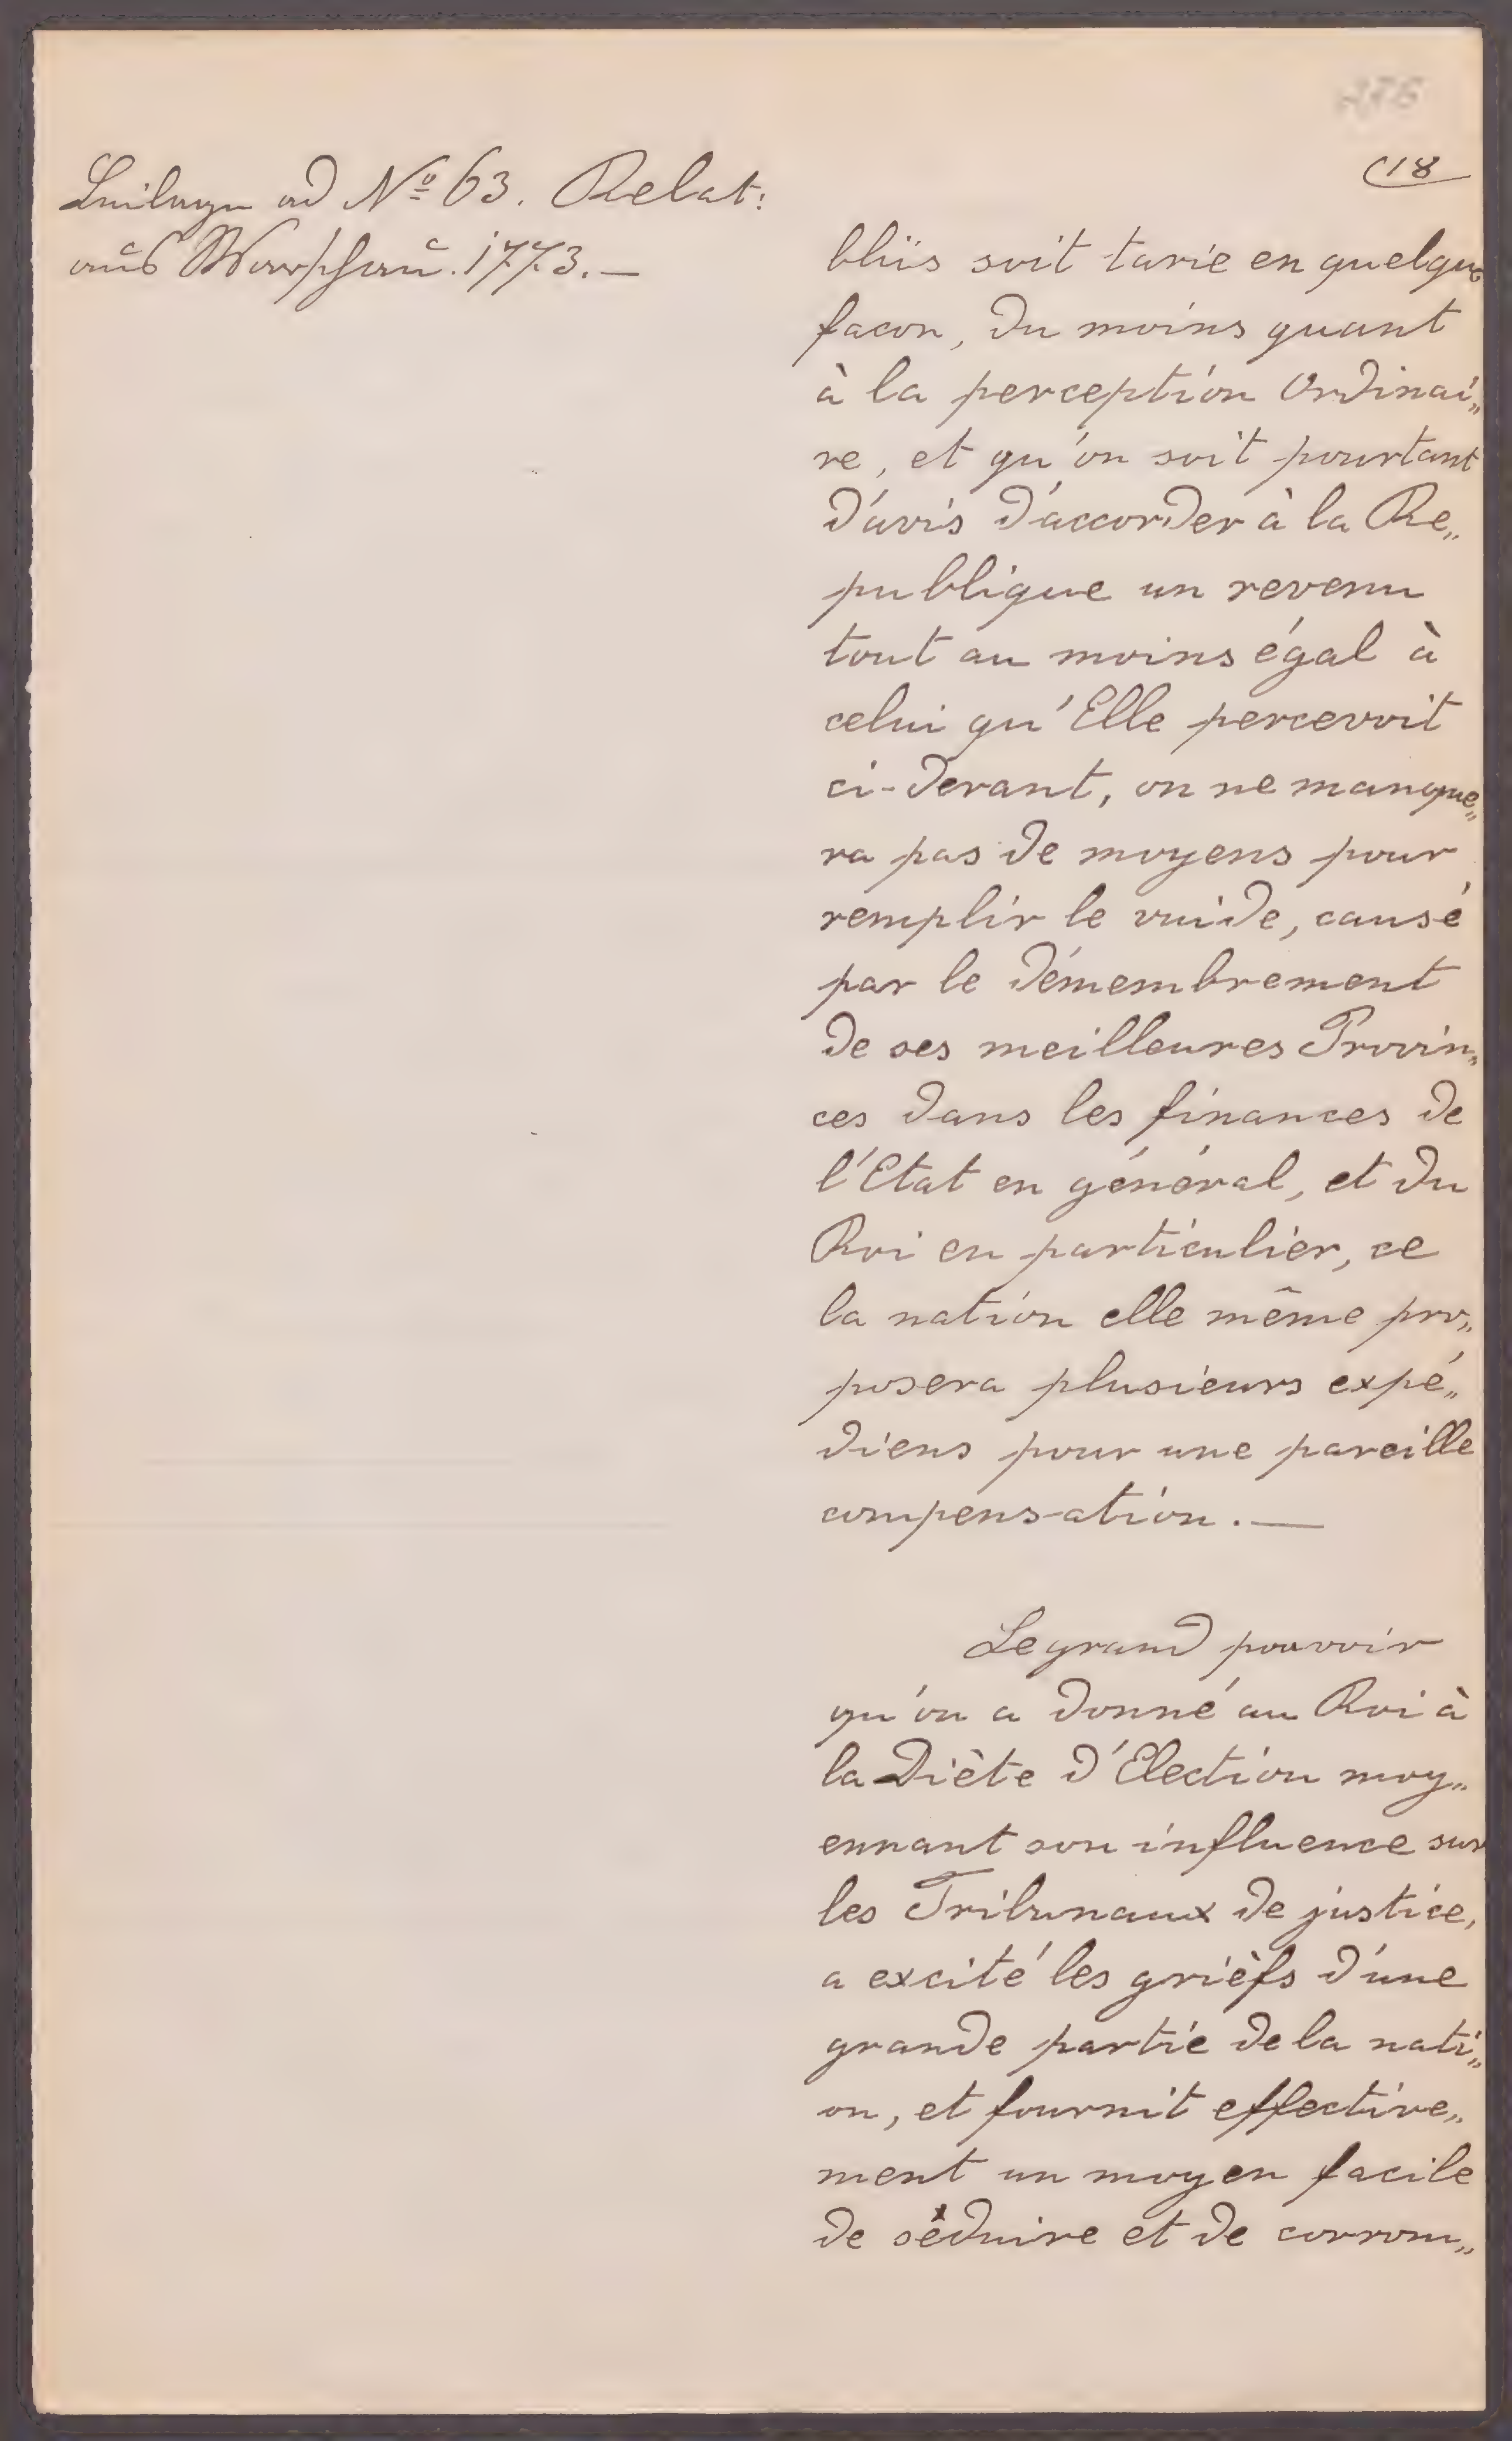 276
(18
Beilage ad Nº 63. Relat:
aus Warschau. 1773.—
bliis soit tarie en quelque
facon, du moins quant
à la perception Ordinai„
re, et qu'on soit pourtant
d'avis d'accorder à la Re„
publique un revenu
tout au moins égal à
celui qu'Elle percevoit
ci-devant, on ne manque„
ra pas de moyens pour
remplir le vuide, causé
par le démembrement
de ses meilleures Provin„
ces dans les finances de
l'Etat en général, et du
Roi en particulier, ce
la nation elle même pro„
posera plusieurs expé„
diens pour une pareille
compensation.—
Le grand pouvoir
qu'on a donné au Roi à
la Diète d'Election moy„
ennant son influence sur
les Tribunaux de justice,
a excité les grièfs d'une
grande partie de la nati„
on, et fournit effective„
ment un moyen facile
de séduire et de corrom„